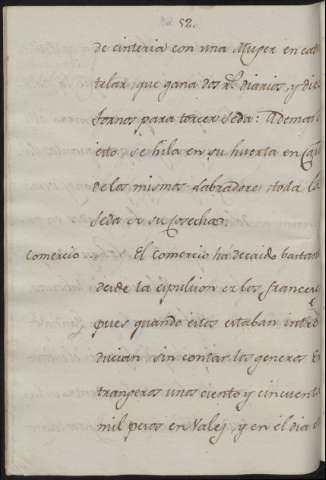 52.
de cinteria con una Muger en cada
telar, que gana dos r.^s diarios, y diez
tornos para torcer seda: Ademas de
esto se hila en su huerta en Casa
de los mismos Labradores toda la
seda de su cosecha.
Comercio El comercio ha decaido bastante
desde la expulsion de los franceses
pues quando estos estaban intro
ducian sin contar los generos Ex
trangeros unos ciento y cincuenta
mil pesos en Vales, y en el dia